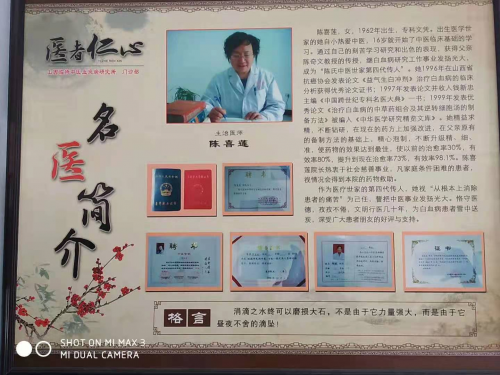 医者仁心
名医简介
主治医师
陈喜莲
陈喜莲,女,1962年出生,专科文凭。出生医学世
家的她自小热爱中医,16岁就开始了中医临床基础的学
习。通过自己的刻苦学习研究和出色的表现,获得父亲
陈奇文教授的传授,继白血病研究工作事业发扬光大,
成为"陈氏中医世家第四代传人"。她1996年在山西省
抗癌协会发表论文《益气生白冲剂》治疗白血病的临床
分析获得优秀论文证书;1997年发表论文并收入钱新忠
主编《中国跨世纪专科名医大典》一书;1999年发表优
秀论文《治疗白血病的中草药组合及其逆转键施活的制
备方法》被编入《中华医学研究精览文库》。她精益求
精,不断钻研,在现在的药方上加强改进,在父亲原有
的备制方法的基础上,精心炮制,不断升级精、细、
准,使药物的效果达到最佳,使以前的治愈率30%,有
效率80%,提升到现在治愈率73%,有效率98.1%。陈喜
莲院长热衷于社会慈善事业,凡家庭条件困难的患者,
视情况会得到本院的药物救助。
作为医疗世家的第四代传人,她视"从根本上消除
患者的痛苦"为已任,誓把中医事业发扬光大。恪守医
德,孜孜不倦,文明行医几十年,为白血病患者雪中送
炭,深受广大患者朋友的好评与支持。
格言
涓滴之水终可以磨损大石,不是由于它力量强大,而是由于它
昼夜不舍的滴坠!
SHOT ON MI MAX 3
MI DUAL CAMERA